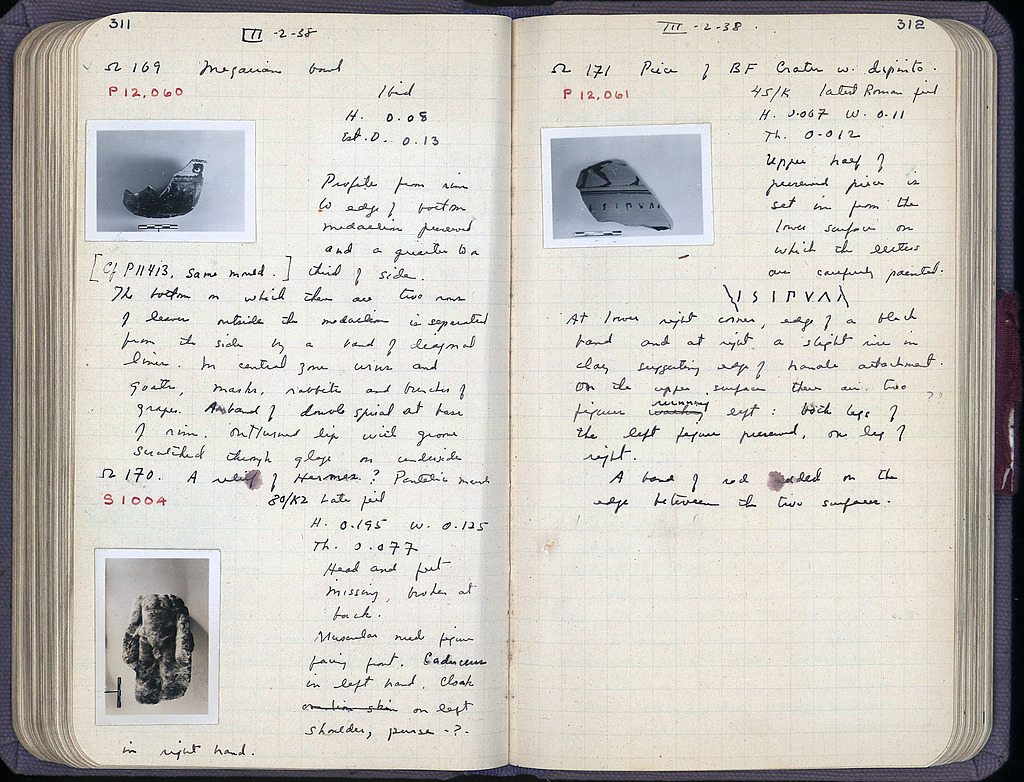 311
III -2-38
Ω 169 Megarian bowl
P 12,060
Ibid
H. 0.08
Est. D. 0.13
Profile from rim
to edge of bottom
medallion preserved
and a quarter to a
third of side.
[Cf P11413, same mould.]
The bottom on which there are two rows
of leaves outside the medallion is separated
from the side by band of diagonal
lines. In central zone urns and
goats, masks, rabbits and bunches of
grapes. A band of double spiral at base
of rim. Outturned lip with groove
scratched through glaze on underside
Ω 170. A relief of Hermes? Pentelic marb
S 1004
80/KZ Late fill
H. 0.195 W. 0.125
Th. 0.077
Head and feet
missing, broken at
back.
Muscular nude figure
facing front. Caduceus
in left hand. Cloak
or lion skin on left
shoulder, purse -?
in right hand.
312
III -2-38.
Ω 171 Piece of BF Crater w. dipinto.
P 12,061
45/K latest Roman fill
H. 0.067 W. 0.11
Th. 0.012
Upper half of
preserved piece is
set in from the
lower surface on
which the letters
are carefully painted.
At lower right corner, edge of a black
band and at right a slight rise in
clay suggesting edge of handle attachment.
On the upper surface there are two
figures running left: both legs of ??
the left figure preserved, one leg of
right.
A band of red added on the
edge between the two surfaces.